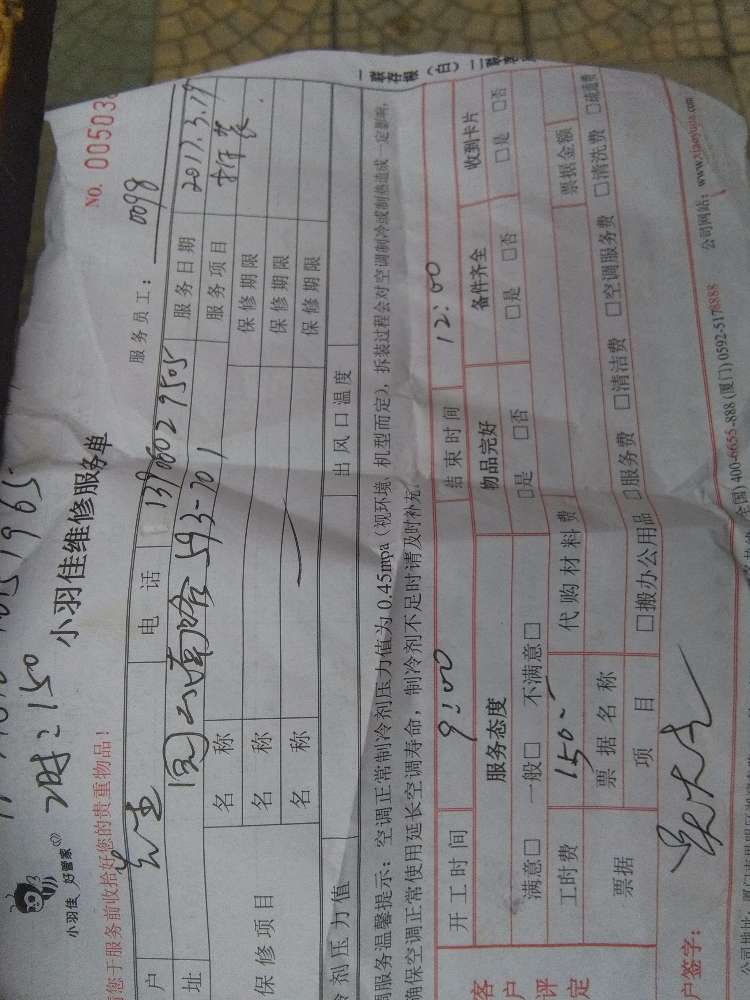 No. 005038
小羽佳 好管家
小羽佳维修服务单
服务员工： 0098
请您于服务前收拾好您的贵重物品！
户
先生
电 话
服务日期
2017.3.19
址
593-701
服务项目
保修项目
名 称
保修期限
名 称
保修期限
名 称
保修期限
冷剂压力值
出风口温度
调服务温馨提示：空调正常制冷剂压力值为 0.45mpa（视环境、机型而定），拆装过程会对空调制冷或制热造成一定影响，
确保空调正常使用延长空调寿命，制冷剂不足时请及时补充。
开工时间
9:00
结束时间
12:00
客户评定
服务态度
物品完好
备件齐全
收到卡片
满意□ 一般□ 不满意□
□是 □否
□是 □否
□是 □否
工时费
150-
代购材料费
票据
票据名称
票据金额
项 目
□搬办公用品 □服务费 □清洁费 □空调服务费 □清洗费 □疏通费
户签字：
公司网站：www.xiaoyujia.com
400-6655-888 (厦门) 0592-5178888